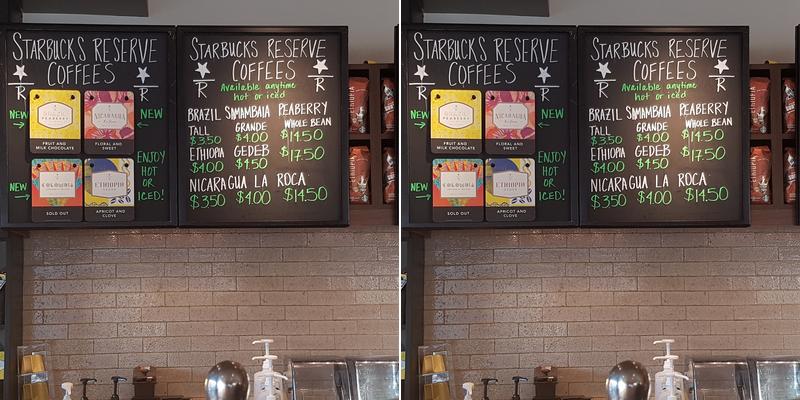 STARBUCKS RESERVE
COFFEES
R
R
NEW
NEW
PEABERRY
NICARAGUA
FRUIT AND
MILK CHOCOLATE
FLORAL AND
SWEET
ENJOY
HOT
OR
ICED!
NEW
COLOMBIA
ETHIOPIA
SOLD OUT
APRICOT AND
CLOVE
STARBUCKS RESERVE
COFFEES
R
R
Available anytime
hot or iced
BRAZIL SAMAMBAIA PEABERRY
TALL GRANDE WHOLE BEAN
$3.50 $4.00 $14.50
ETHIOPIA GEDEB
$4.00 $4.50 $17.50
NICARAGUA LA ROCA
$350 $4.00 $14.50
STARBUCKS RESERVE
COFFEES
R
R
NEW
NEW
PEABERRY
NICARAGUA
FRUIT AND
MILK CHOCOLATE
FLORAL AND
SWEET
ENJOY
HOT
OR
ICED!
NEW
COLOMBIA
ETHIOPIA
SOLD OUT
APRICOT AND
CLOVE
STARBUCKS RESERVE
COFFEES
R
R
Available anytime
hot or iced
BRAZIL SAMAMBAIA PEABERRY
TALL GRANDE WHOLE BEAN
$3.50 $4.00 $14.50
ETHIOPIA GEDEB
$4.00 $4.50 $17.50
NICARAGUA LA ROCA
$350 $4.00 $14.50